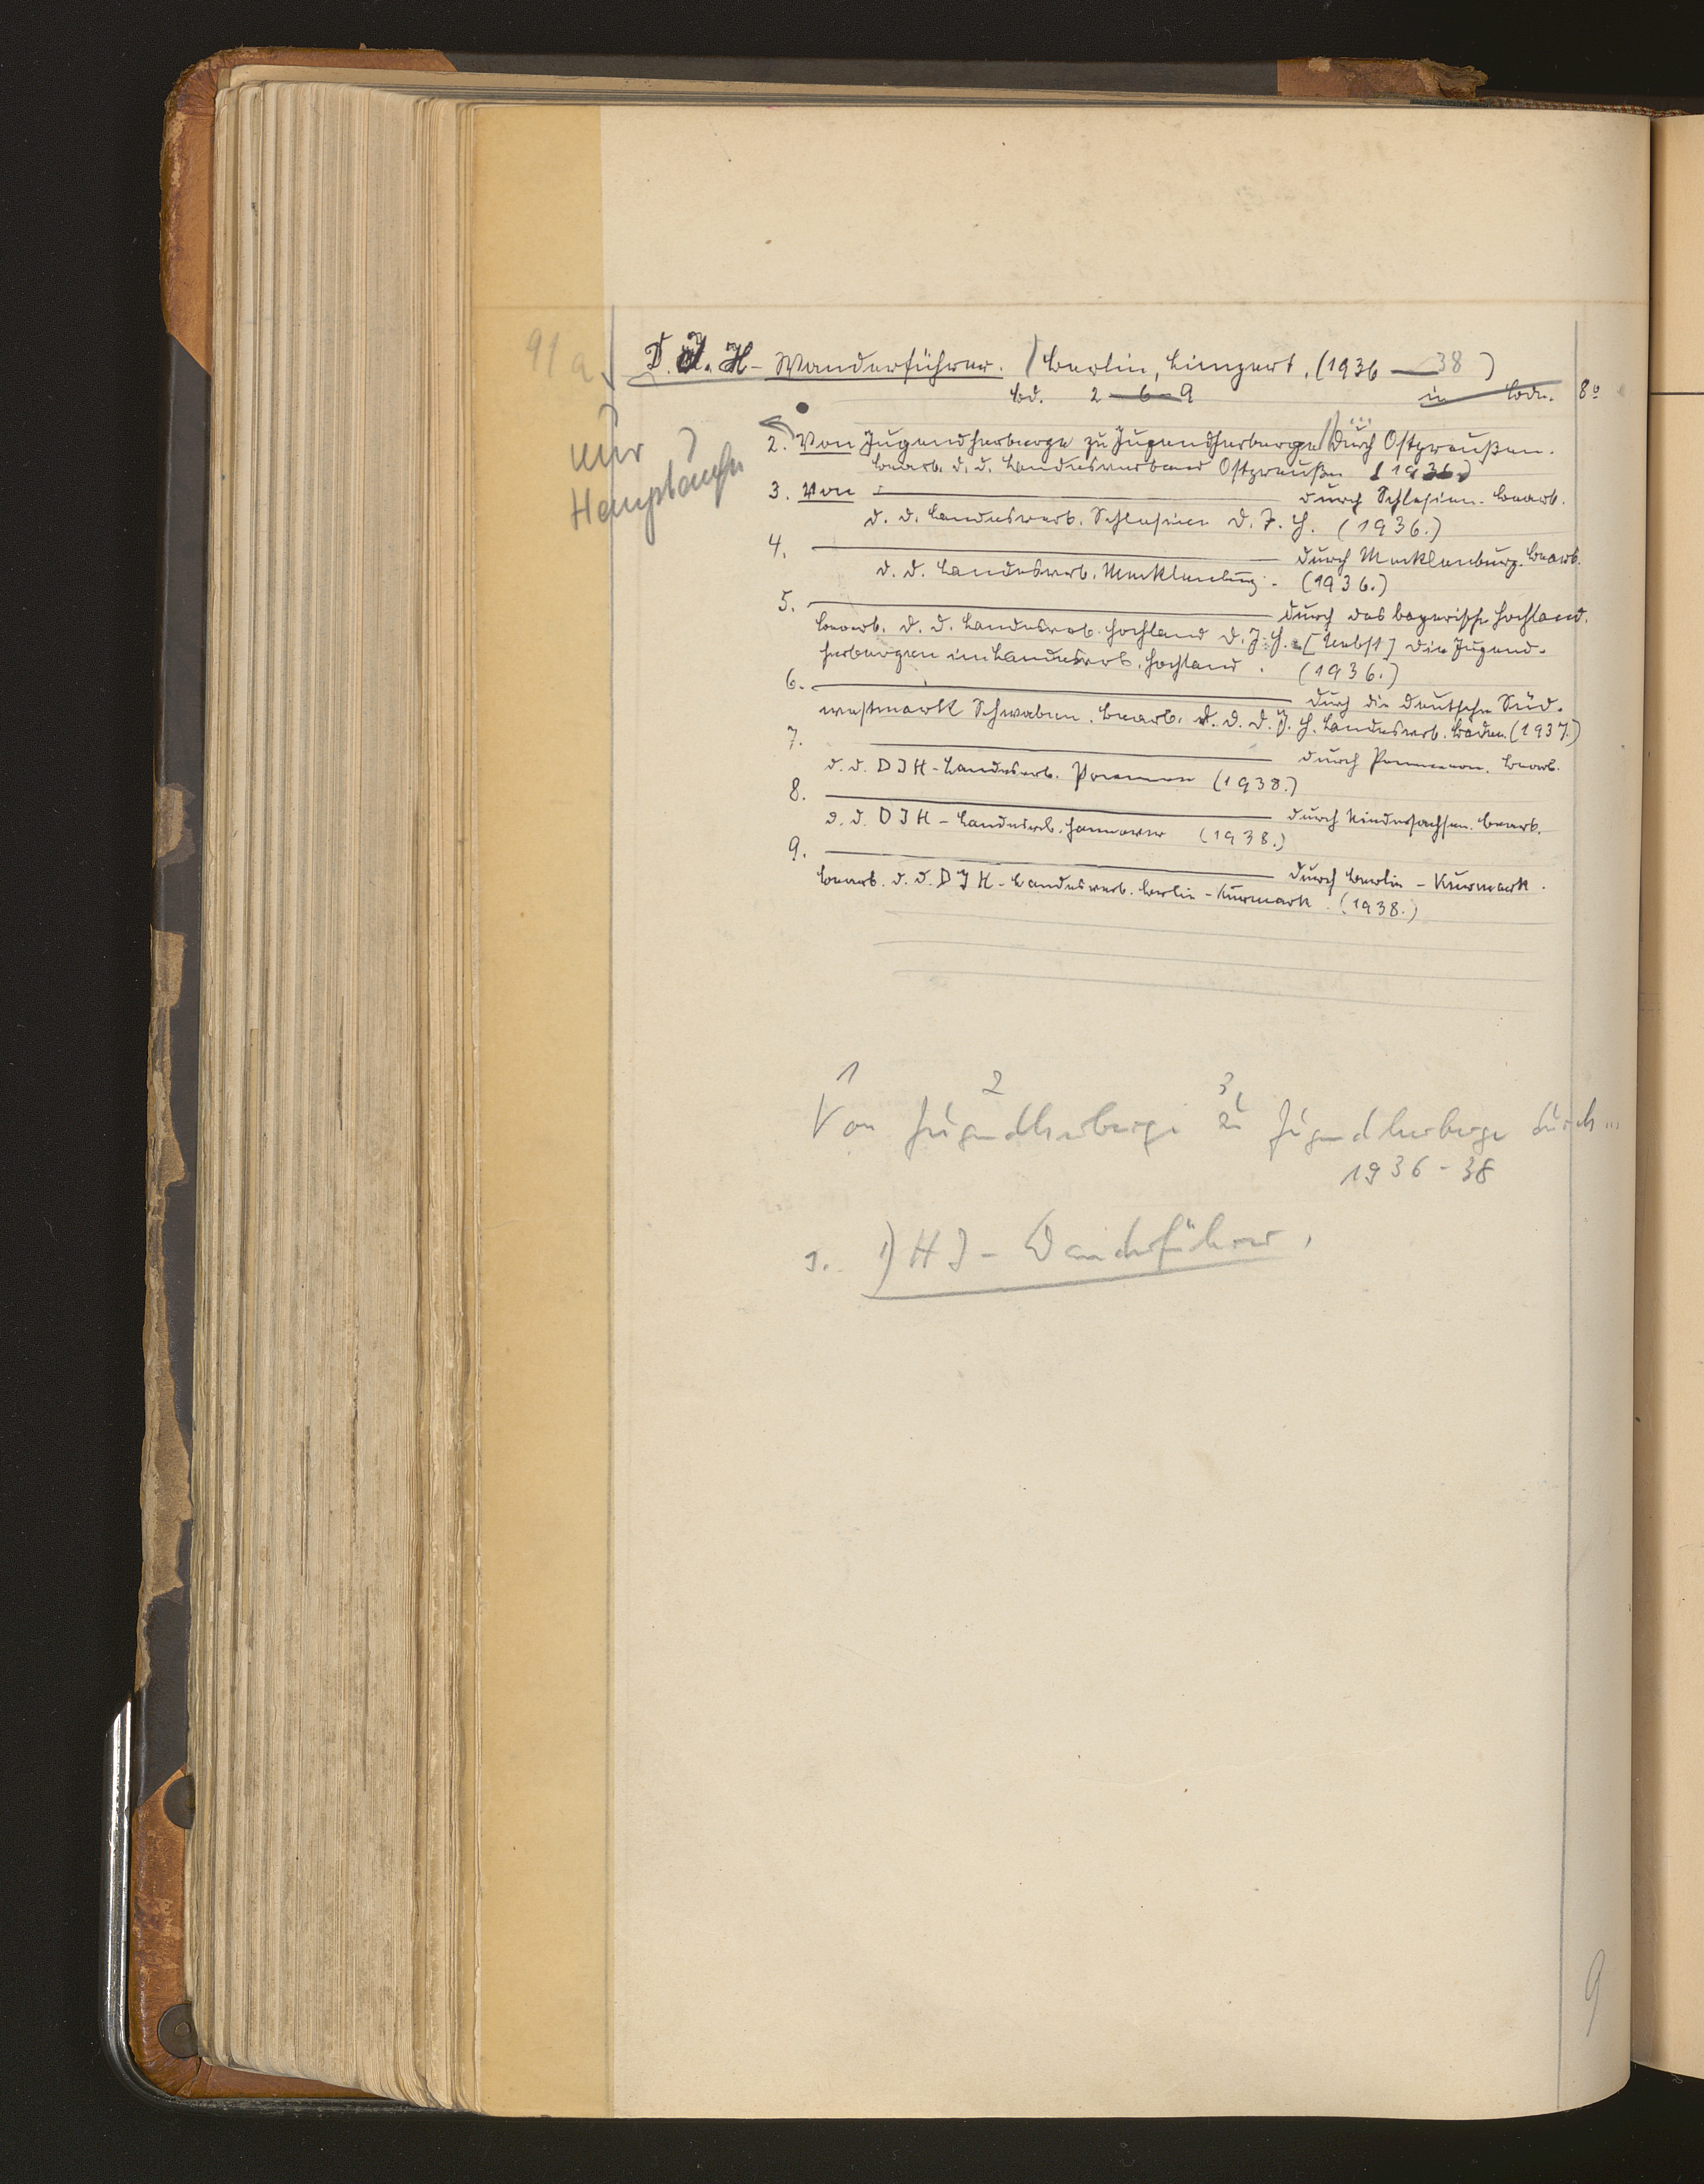 91 a
D. J. H- Wanderführer. / Berlin, Limpert. (1936 — 38 )
Bd. 2 - 6 - 9 in Bdn. 8°
nur
Hauptaufn
2. Von Jugendherberge zu Jugendherberge // durch Ostpreußen.
bearb. d. d. Landesverband Ostpreußen (1936.)
3. Von ——— durch Schlesien. bearb.
d. d. Landesverb. Schlesien d. J. H. (1936.)
4. ——— durch Mecklenburg. bearb.
d. d. Landesverb. Mecklenburg. (1936.)
5. ——— durch das bayerische Hochland.
bearb. d. d. Landesverb. Hochland d. J. H. [Nebst] Die Jugend-
herbergen im Landesverb. Hochland. (1936.)
6. ——— durch die deutsche Süd-
westmark Schwaben. bearb. d. d. D. J. H. Landesverb. Baden. (1937.)
7. ——— durch Pommern. bearb.
d. d. DJH-Landesverb. Pommern (1938.)
8. ——— durch Niedersachsen. bearb.
d. d. DJH-Landesverb. Hannover (1938.)
9. ——— durch Berlin-Kurmark.
bearb. d. d. DJH-Landesverb. Berlin-Kurmark. (1938.)
1 2 3
Von Jugendherberge zu Jugendherberge durch ...
1936-38
s. DHJ-Wanderführer.
9